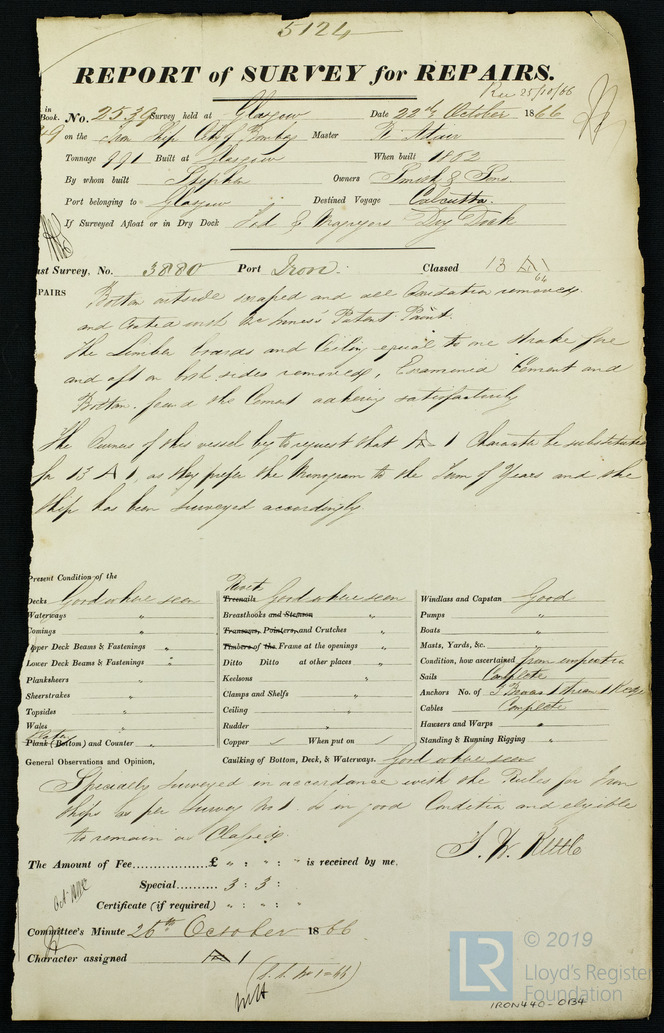 5124
REPORT of SURVEY for REPAIRS.
Rec 25/10/66
in Book. No. 2539 Survey held at Glasgow Date 22nd October 1866
on the Iron Ship City of Bombay Master
Tonnage 991 Built at Glasgow When built 1862
By whom built Stephen Owners Smith & Sons
Port belonging to Glasgow Destined Voyage Calcutta.
If Surveyed Afloat or in Dry Dock Tod & Macgregors Dry Dock
Survey. No. 3880 Port Iron. Classed 13 A 1
64
PAIRS Bottom outside scraped and all Oxidation removed
and Coated with Mc Inness's Patent Paint.
The Limber boards and Ceiling equal to one strake fore
and aft on both sides removed, Examined Cement and
Bottom, found the Cement adhering satisfactorily
The Owners of this vessel request that A 1 Character be substituted
for 13 A 1, as they prefer the Monogram to the Term of Years and the
Ship has been Surveyed accordingly
Present Condition of the
Decks Good where seen
Waterways "
Comings "
Upper Deck Beams & Fastenings "
Lower Deck Beams & Fastenings "
Planksheers "
Sheerstrakes "
Topsides "
Wales "
Plates
Plank (Bottom) and Counter "
Rivets
Treenails Good where seen
Breasthooks and Stemson "
Transoms, Pointers, and Crutches "
Timbers of the Frame at the openings "
Ditto Ditto at other places "
Keelsons "
Clamps and Shelfs "
Ceiling "
Rudder "
Copper ✓ When put on ✓
Windlass and Capstan Good
Pumps "
Boats "
Masts, Yards, &c. "
Condition, how ascertained from inspection
Sails Complete
Anchors No. of 3 Bowers 1 Stream 1 Kedge
Cables Complete
Hawsers and Warps "
Standing & Running Rigging "
General Observations and Opinion, Caulking of Bottom, Deck, & Waterways. Good where seen
Specially Surveyed in accordance with the Rules for Iron
Ships as per Survey No 1. is in good Condition and eligible
to remain as Classed.
J. W. Kettle
The Amount of Fee............... £ " : " : " is received by me.
Special......... 3 : 3 :
Certificate (if required) " : " : "
Committee's Minute 26th October 1866
Character assigned A 1
(S.S. No 1-66)
© 2019
LR
Lloyd's Register
Foundation
IRON440-0134